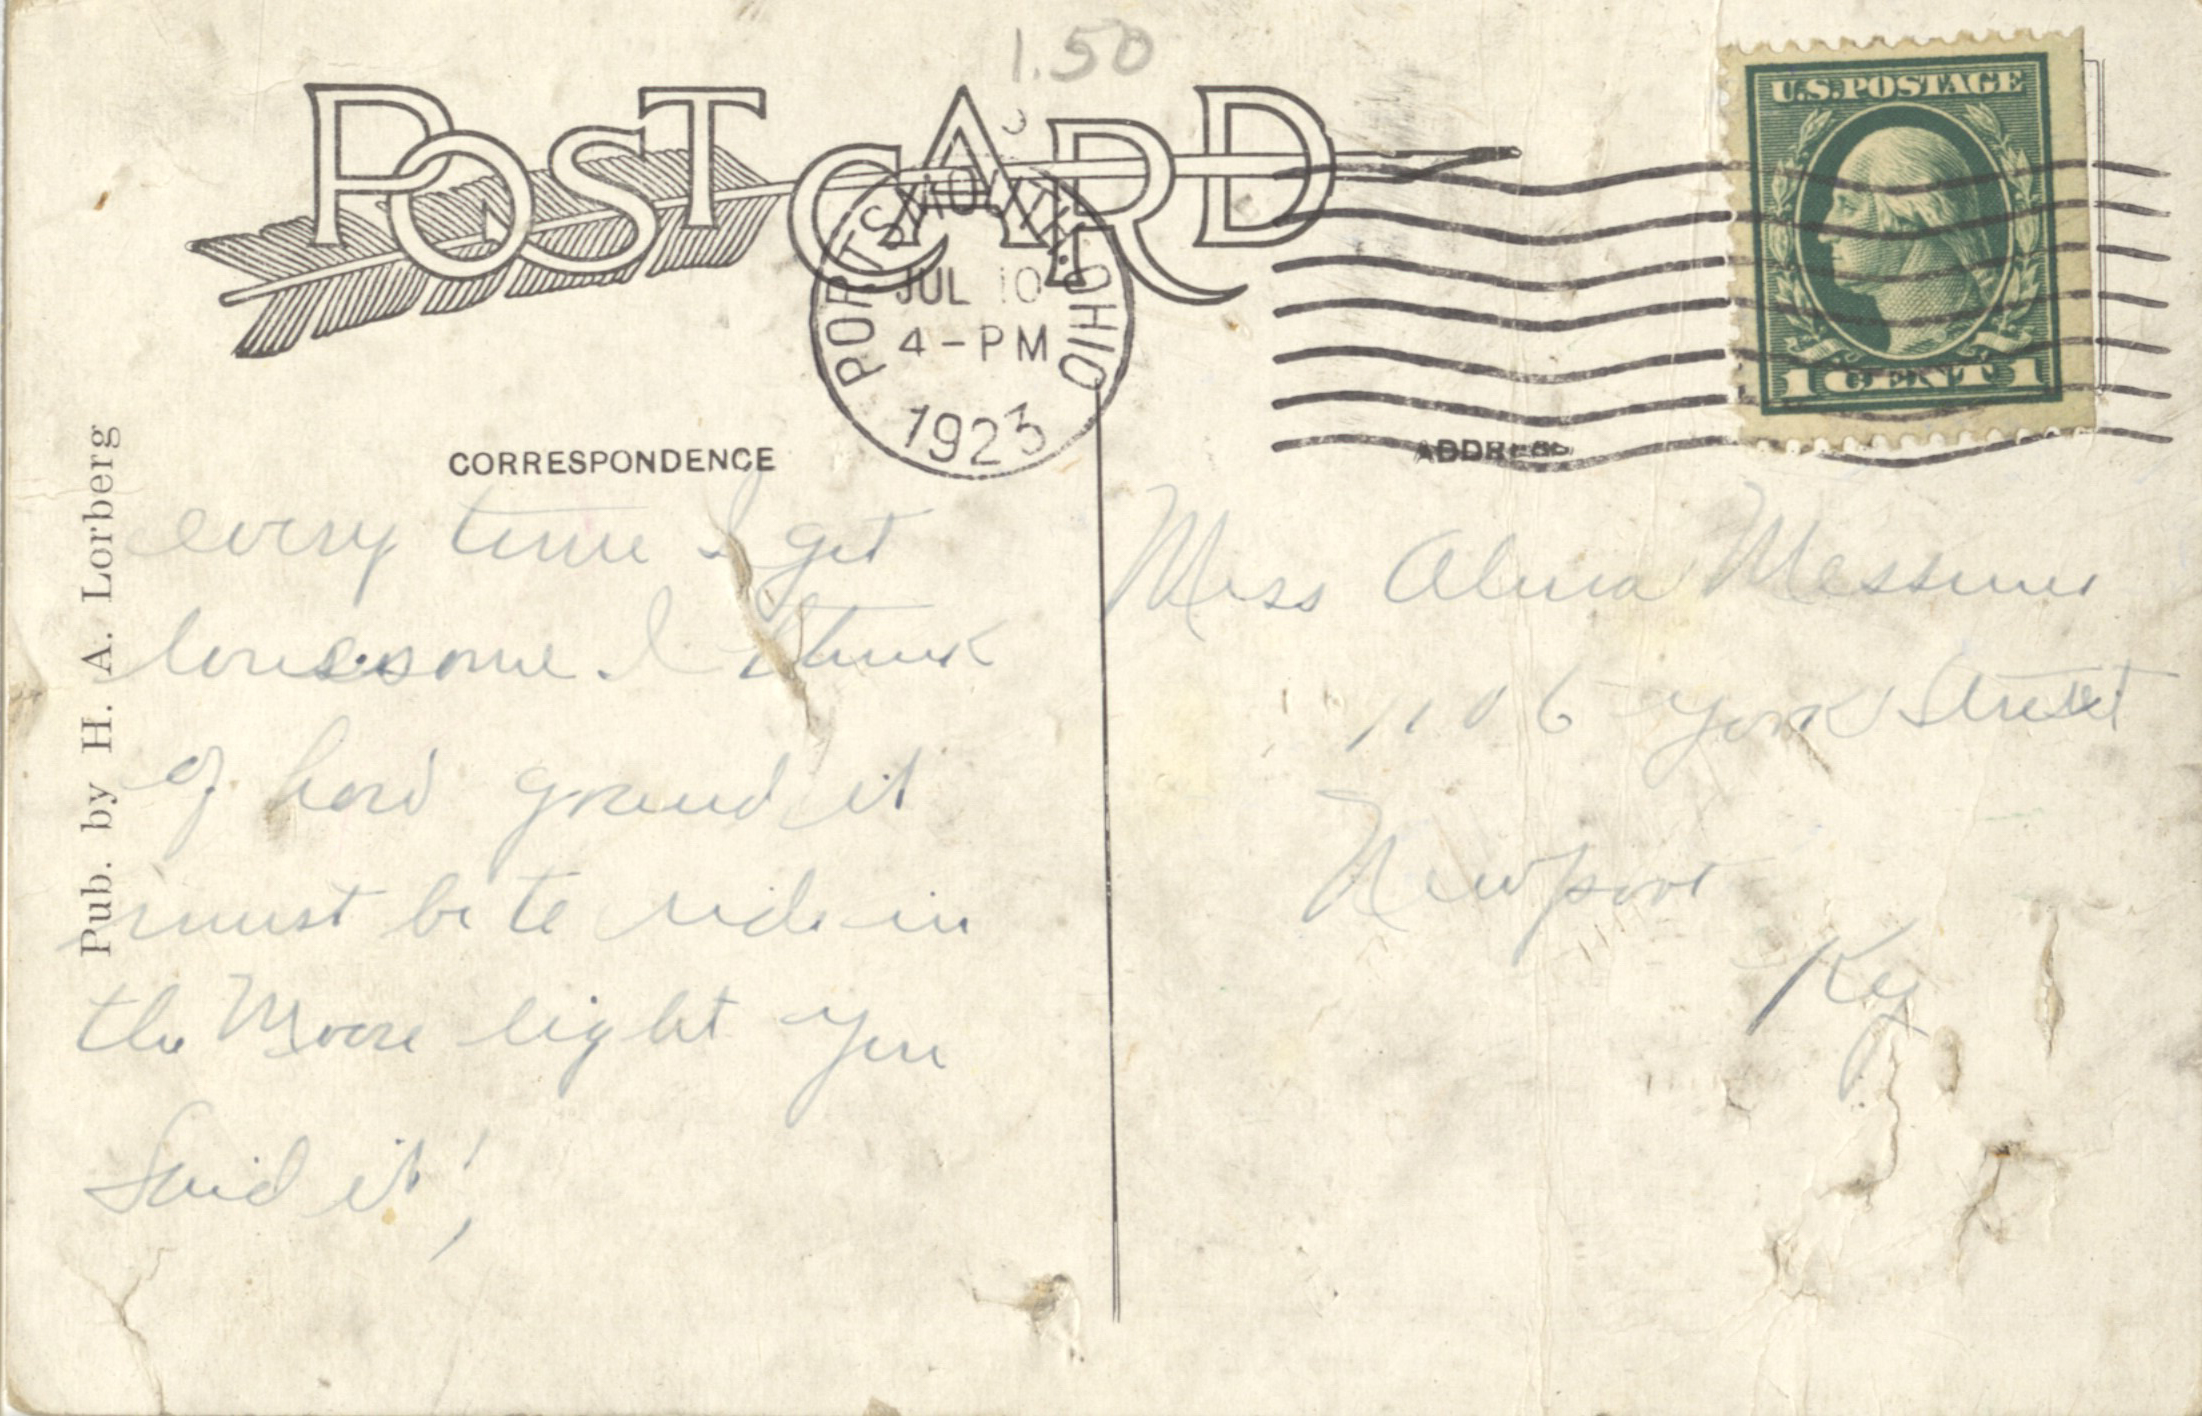 1.50
POST CARD
U.S.POSTAGE
1 CENT 1
PORTSMOUTH, OHIO
JUL 10
4-PM
1923
CORRESPONDENCE
ADDRESS
Pub. by H. A. Lorberg
every time I get
lonesome. I think
of how grand it
must be to ride in
the Moone light you
Said it!
Miss Alma Messmer
1106 York Street
Newport
Ky